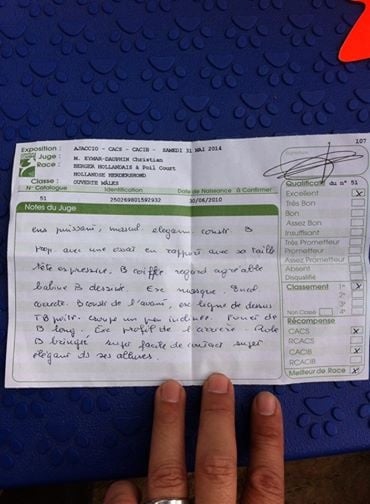 107
Exposition : AJACCIO - CACS - CACIB - SAMEDI 31 MAI 2014
Juge : M. EYMAR-DAUPHIN Christian
Race : BERGER HOLLANDAIS à Poil Court
HOLLANDSE HERDERSHOND
Classe : OUVERTE MâLES
N° Catalogue Identification Date de Naissance à Confirmer
51 250269801592932 30/06/2010
Notes du Juge
puissant, elegant constr. B
avec une ossat en rapport avec sa taille
tête expressive. B coiffé regard agréable
babine B dessiné. Exc masque.
correcte. B constr de l'avant, exc ligne de dessus
TB croupe un peu inclinée. Fouet de
B long. Exc profil de l'arrière. Robe
B bringée sujet facile de contact sujet
élégant ds ses allures.
Qualificatif du n° 51
Excellent X
Très Bon
Bon
Assez Bon
Insuffisant
Très Prometteur
Prometteur
Assez Prometteur
Absent
Disqualifié
Classement 1er X
2e
3e
Non Classé 4e
Récompense
CACS X
RCACS
CACIB X
RCACIB
Meilleur de Race X